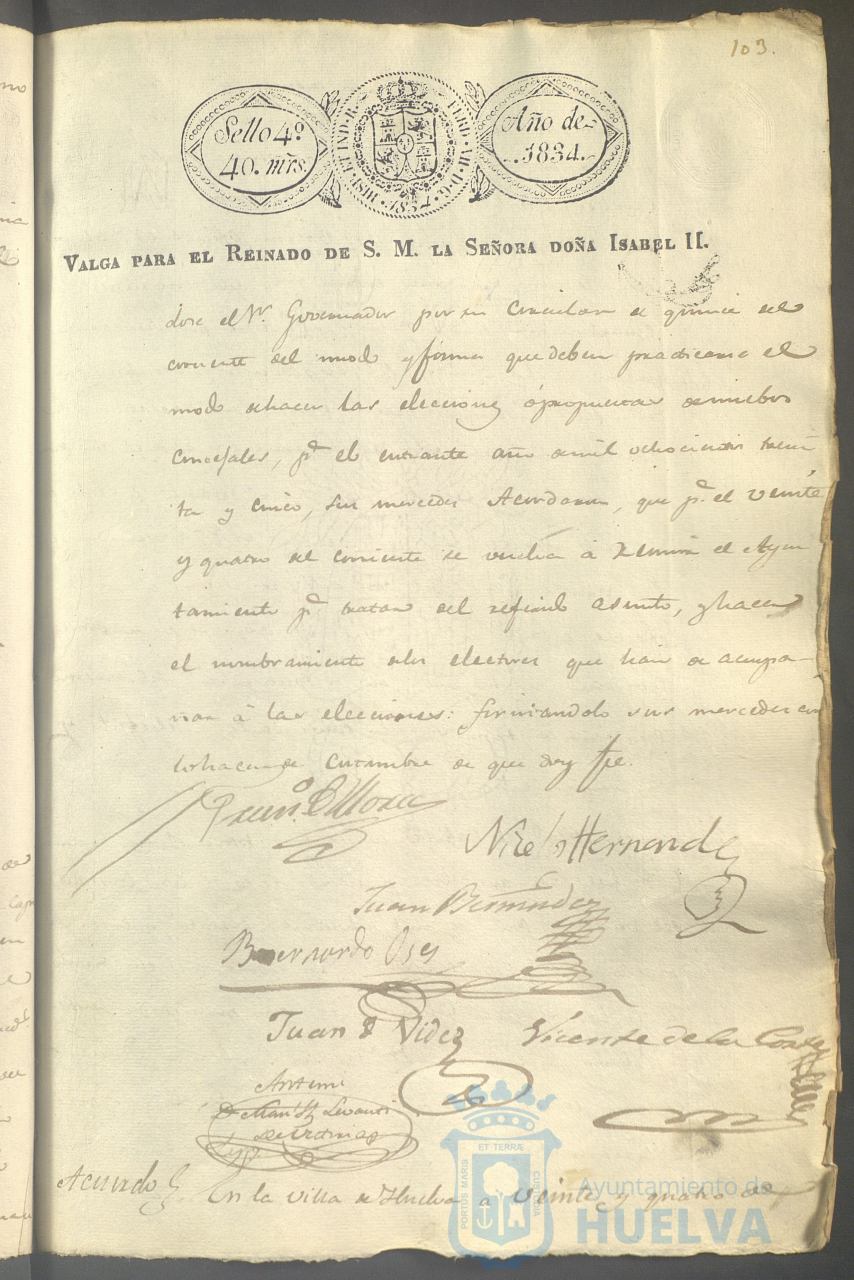 103.
Sello 4º
40. mrs.
HISP. ET IND. R. FERD. VII. D. G. 1834.
Año de
1834.
VALGA PARA EL REINADO DE S. M. LA SEÑORA DOÑA ISABEL II.
dose el Sr. Governador por su Circular de quince del
corriente del modo y forma que deben practicarse el
modo de hacer las elecciones ó propuestas de nuebos
Concejales, pª el entrante año de mil ochocientos trein
ta y cinco, sus mercedes Acordaron, que pª el veinte
y quatro del corriente se vuelva á reunir el Ayun
tamiento pª tratar del referido asunto, y hacer
el nombramiento de los electores que han de acompa-
ñar á las elecciones: firmandolo sus mercedes con
costumbre de que doy fe.
Nicolas Hernandez
Juan Bermudez
Bernardo
Juan Videz
Vicente de la Corte
Antemi
Acuerdo
En la Villa de Huelva a veinte y quatro de
PORTUS MARIS ET TERRÆ CUSTODIA
Ayuntamiento de
HUELVA